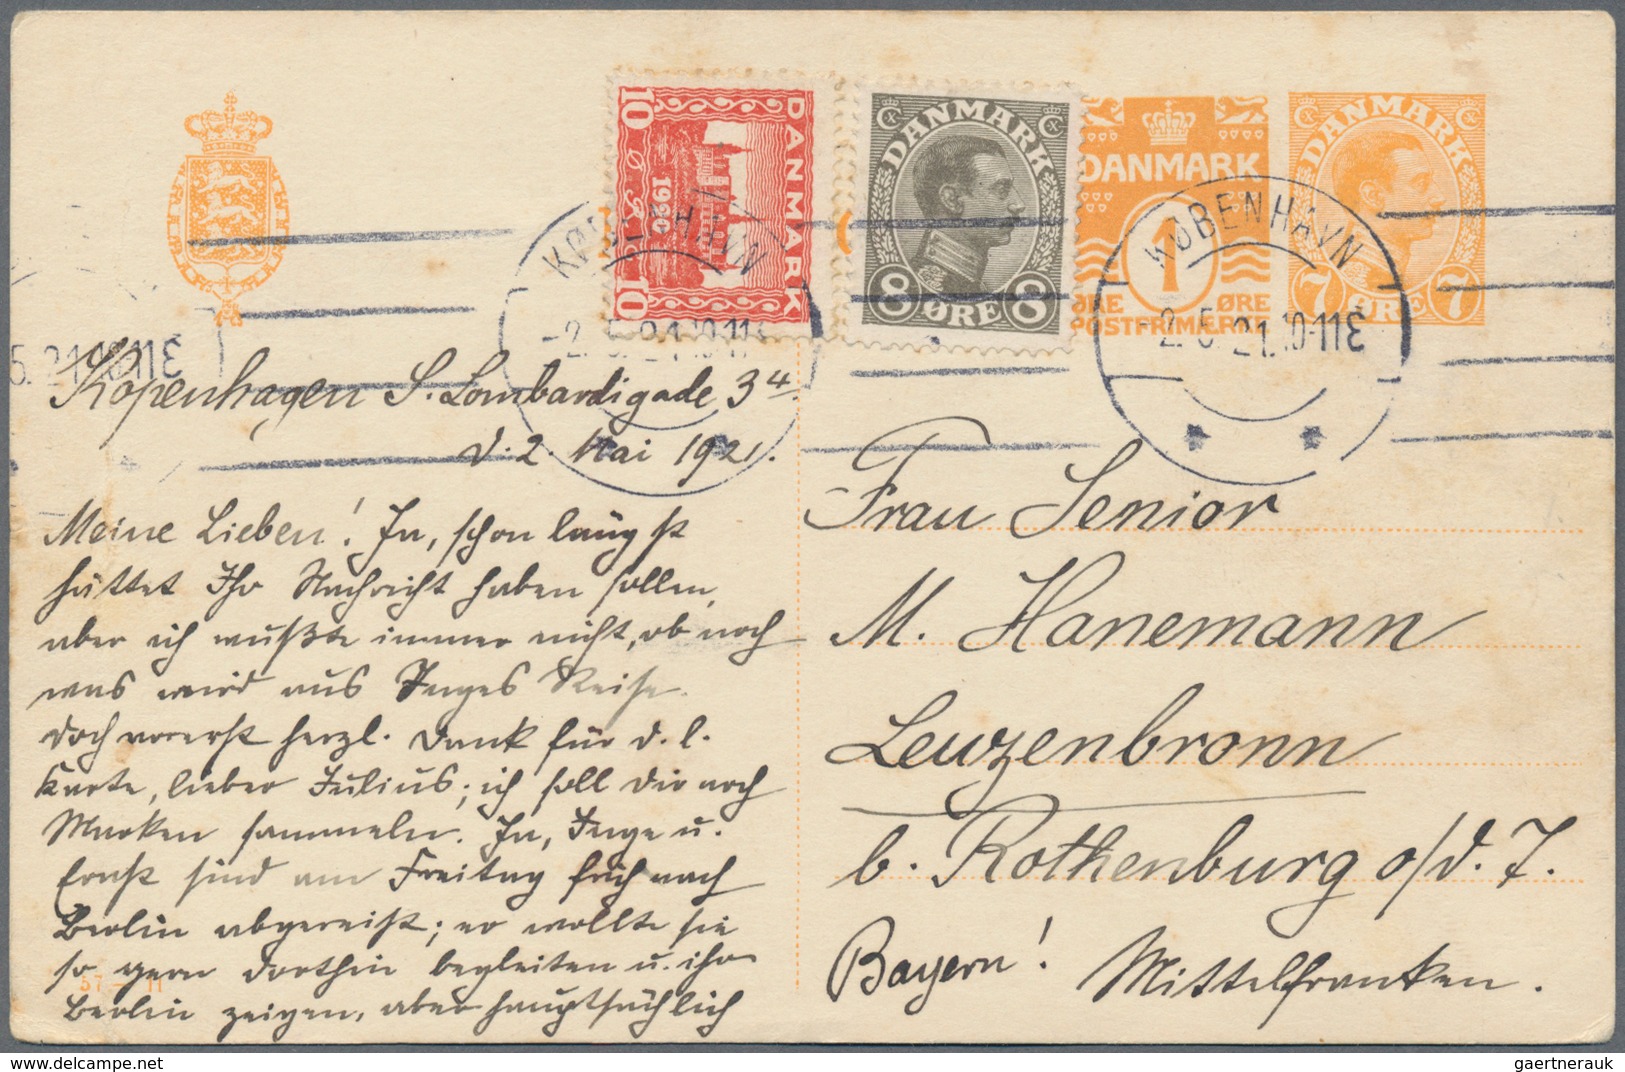 DANMARK
10 ØRE 10
1920
DANMARK
8 ØRE 8
DANMARK
1
ØRE ØRE
POSTFRIMÆRKE
DANMARK
7 ØRE 7
KØBENHAVN
-2.5.21.10-11E
KØBENHAVN
-2.5.21.10-11E
5.21.10-11E
Kopenhagen S. Lombardigade 34.
d. 2. Mai 1921.
Meine Lieben! Ja, schon längst
hättet Ihr Nachricht haben sollen,
aber ich wußte immer nicht, ob noch
was wird aus Inges Reise.
Doch vorerst herzl. Dank für d. l.
Karte, lieber Julius; ich soll Dir noch
Marken sammeln. Ja, Inge u.
Ernst sind am Freitag früh nach
Berlin abgereist; er wollte sie
so gern dorthin begleiten u. ihr
Berlin zeigen, aber hauptsächlich
57 - 11
Frau Senior
M. Hanemann
Leuzenbronn
b. Rothenburg o/d. T.
Bayern! Mittelfranken.
www.delcampe.net
gaertnerauk